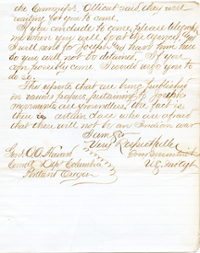 the Comag'g. Officer and they will
waiting for you to come.
If you conclude to come, please telegraph
me when you will be at the Agency, and
I will send for Joseph and have him here
so you will not be detained. If you
can possibly come I would wish you to
do so.
The reports that are being published
in various papers pertaining to Joseph's
movements are groundless. the fact is
there is a certain class who are afraid
that there will not be an Indian war
I am Sir
Very Respectfully
Genl. O. O. Howard
Comd'g Dep't Columbia
Portland Oregon
U.S. Ind Agt